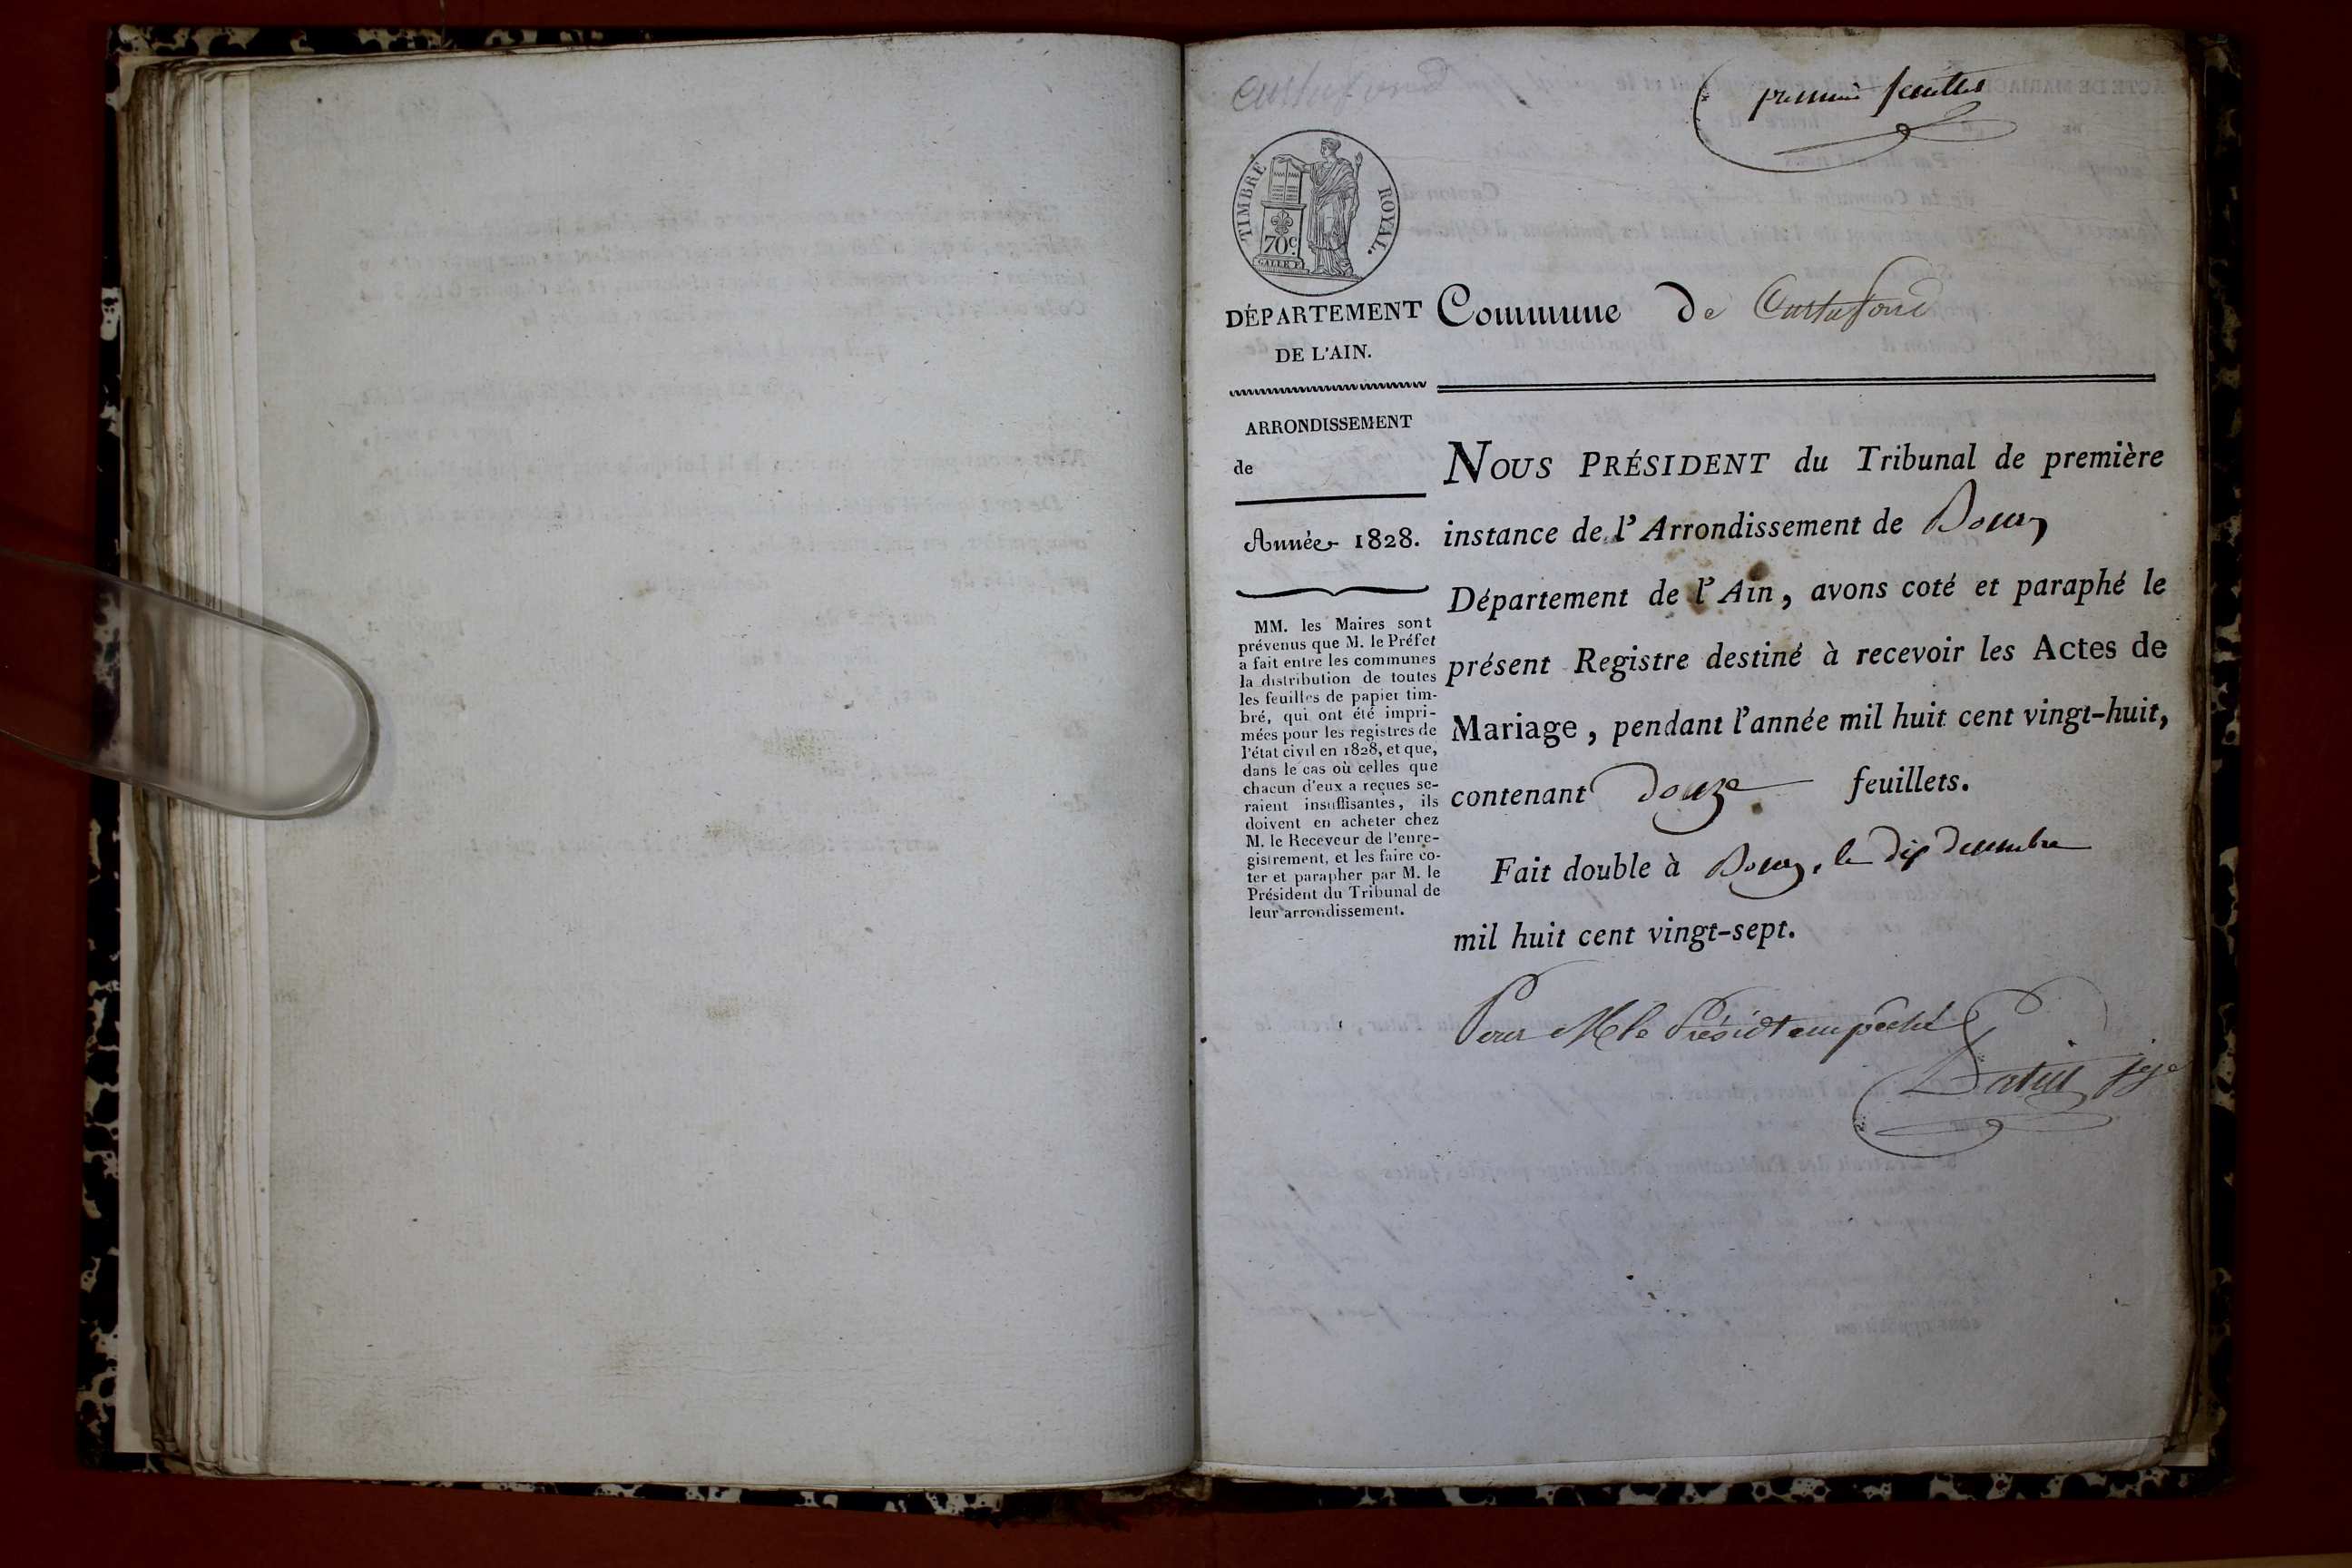 Curtafond
premier feuillet
TIMBRE ROYAL.
70c
GALLE F.
DÉPARTEMENT
DE L'AIN.
Commune de Curtafond
ARRONDISSEMENT
de
Année 1828.
MM. les Maires sont
prévenus que M. le Préfet
a fait entre les communes
la distribution de toutes
les feuilles de papier tim-
bré, qui ont été impri-
mées pour les registres de
l'état civil en 1828, et que,
dans le cas où celles que
chacun d'eux a reçues se-
raient insuffisantes, ils
doivent en acheter chez
M. le Receveur de l'enre-
gistrement, et les faire co-
ter et parapher par M. le
Président du Tribunal de
leur arrondissement.
NOUS PRÉSIDENT du Tribunal de première
instance de l'Arrondissement de Bourg
Département de l'Ain, avons coté et paraphé le
présent Registre destiné à recevoir les Actes de
Mariage, pendant l'année mil huit cent vingt-huit,
contenant douze feuillets.
Fait double à Bourg, le dix decembre
mil huit cent vingt-sept.
Pour M le Présidt empeché
juge